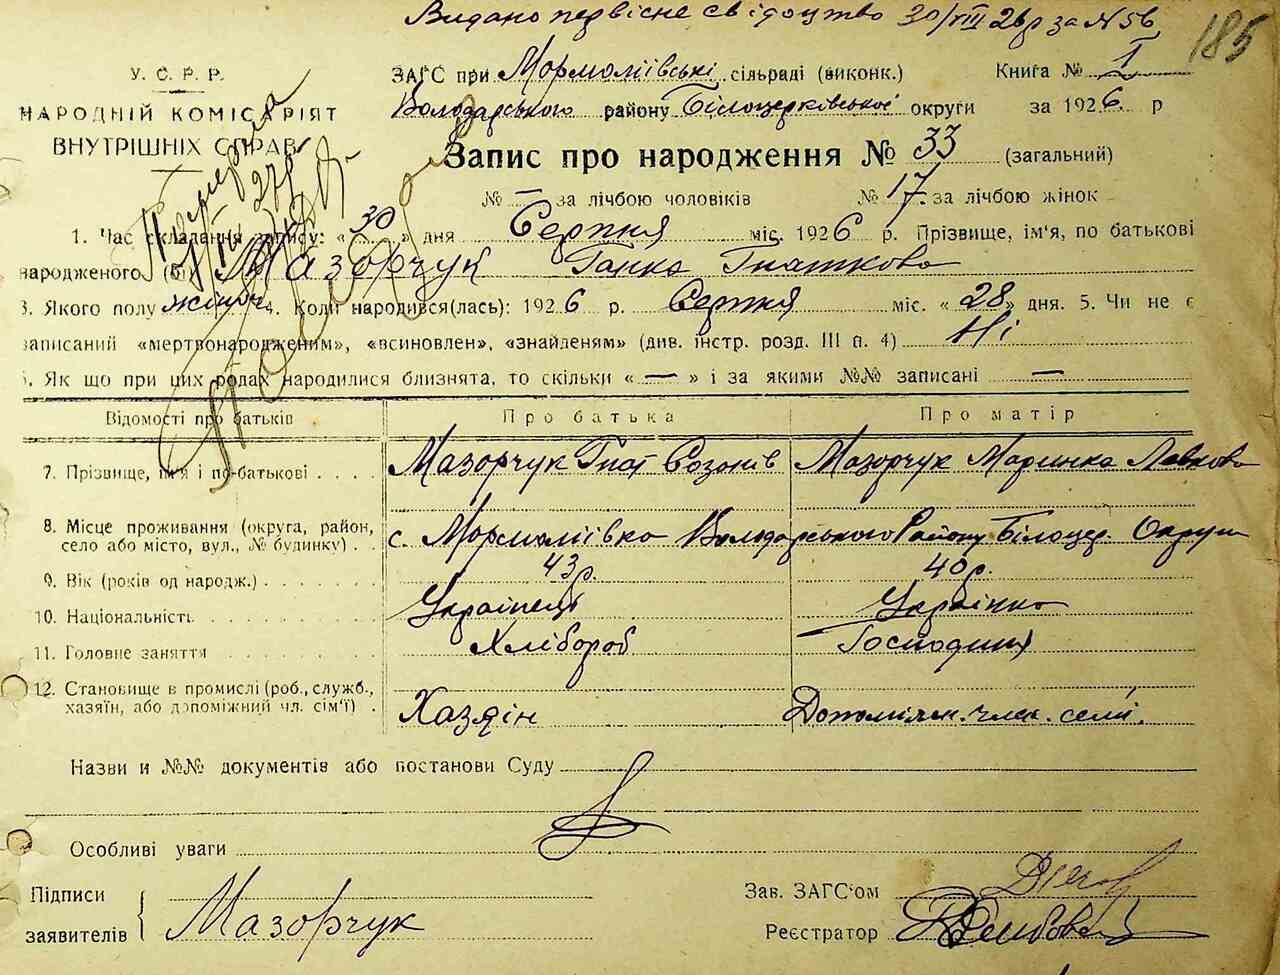 Видано первісне свідоцтво 30/VIII 26 р за № 56
185
У. С. Р. Р.
НАРОДНІЙ КОМІСАРІЯТ
ВНУТРІШНІХ СПРАВ
ЗАГС при Мормоліївські сільраді (виконк.) Книга № I
Володарського району Білоцерківської округи за 1926 р
Запис про народження № 33 (загальний)
№ — за лічбою чоловіків № 17 за лічбою жінок
1. Час складання запису: «30» дня Серпня міс. 1926 р. Прізвище, ім'я, по батькові
народженого (б.) Мазорчук Ганка Гнаткова
3. Якого полу жіноч 4. Коли народився(лась): 1926 р. Серпня міс. «28» дня. 5. Чи не є
записаний «мертвонародженим», «всиновлен», «знайденям» (див. інстр. розд. III п. 4) Ні
Як що при цих родах народилися близнята, то скільки «—» і за якими №№ записані —
Відомості про батьків Про батька Про матір
7. Прізвище, ім'я і по-батькові Мазорчук Гнат Созонів Мазорчук Маринка Левкова
8. Місце проживання (округа, район,
село або місто, вул., № будинку) с. Мормоліївка Володарського Району Білоцер. Округи
9. Вік (років од народж.) 43 р. 40 р.
10. Національність Українець Українка
11. Головне заняття Хлібороб Господиня
12. Становище в промислі (роб., служб.,
хазяїн, або допоміжний чл. сім'ї) Хазяїн Допоміжн. член. семі.
Назви и №№ документів або постанови Суду
Особливі уваги
Підписи
заявителів Мазорчук
Зав. ЗАГС'ом
Реєстратор